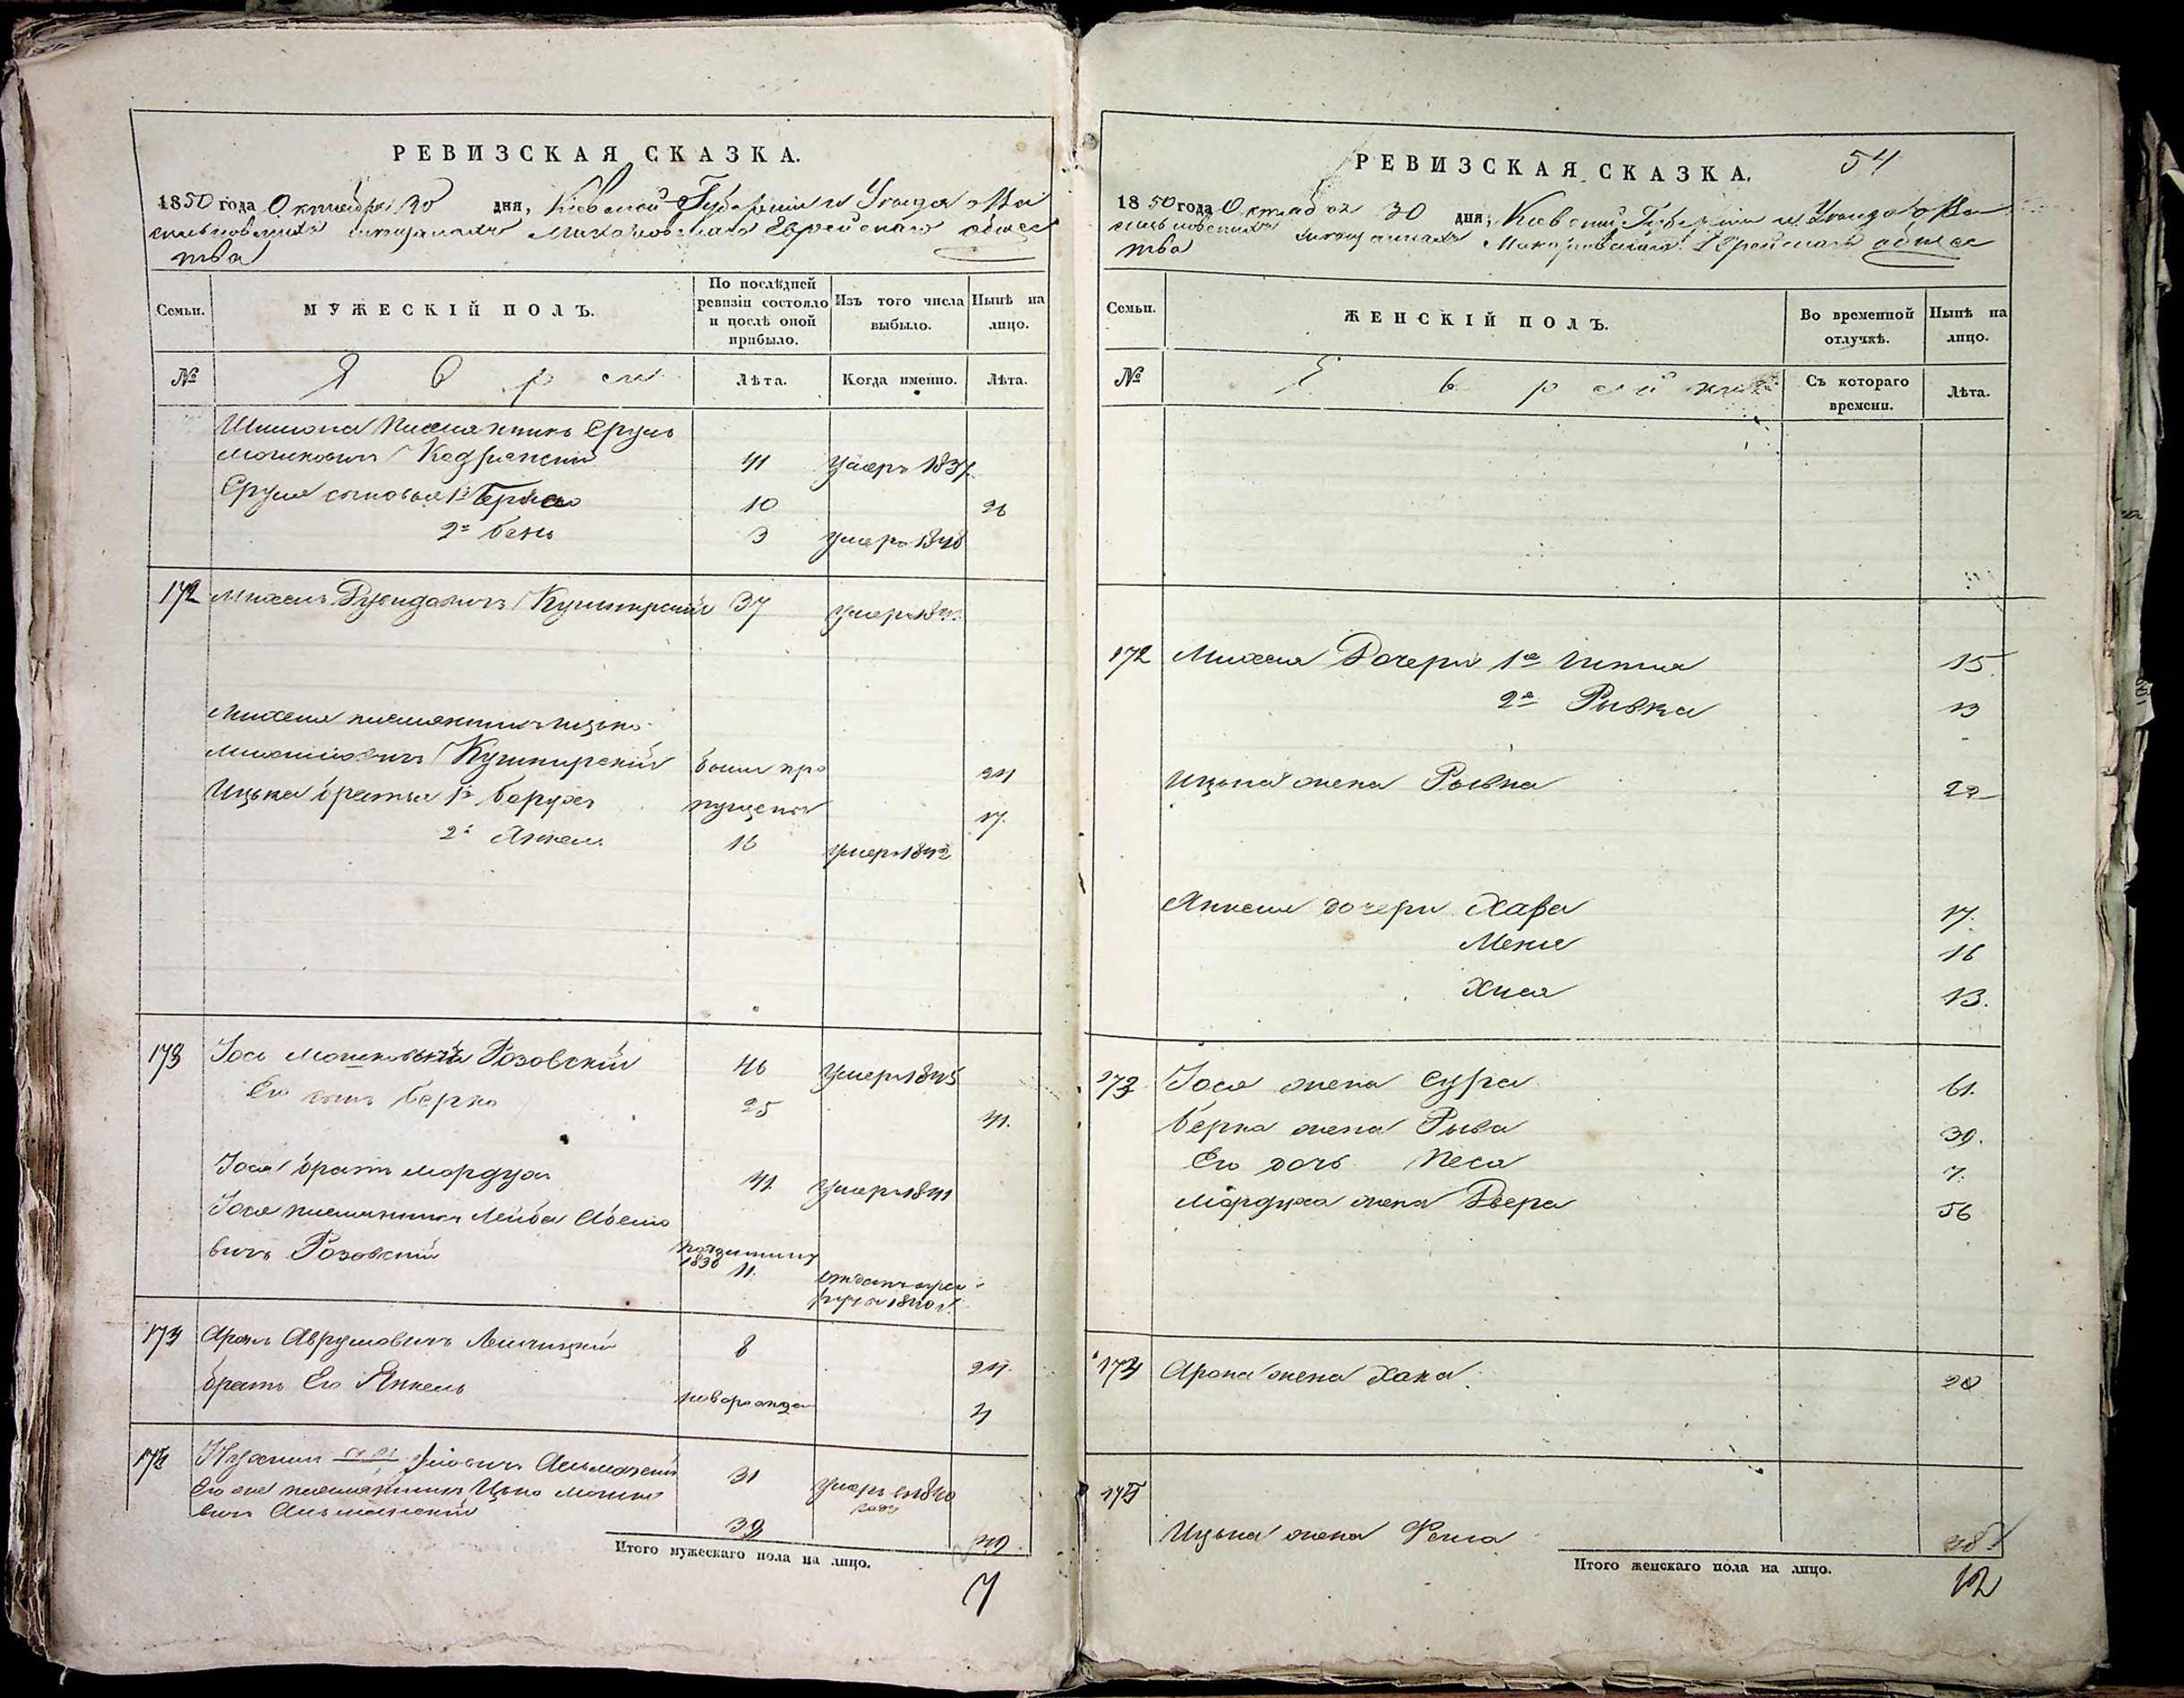 РЕВИЗСКАЯ СКАЗКА.
1850 года Октября 30 дня, Киевской Губернии и Уезда о Ва
сильковских мещанах Макаровскаго Еврейскаго общес
тва
Семьи.
МУЖЕСКІЙ ПОЛЪ.
По послѣдней ревизіи состояло и послѣ оной прибыло.
Изъ того числа выбыло.
Нынѣ на лицо.
№
Евреи
Лѣта.
Когда именно.
Лѣта.
Шимона племянникъ Сруль
Мошковичъ Кодрянскій 41 умеръ 1837
Сруля сыновья 1й Берко 10 26
2й Бень 3 умеръ 1848
172 Михель Дувидовичъ Кушнирскій 37 умеръ
Михеля племянникъ Ицько
Кушнирскій были про 24
Ицька братья 1й Барухъ пущены 17.
2й Янкель 16 умеръ 1842
173 Іось Мошковичъ Розовскій 46 умеръ 1845
Его сынъ Берко 25 41.
Іося братъ Мордухъ 41 умеръ 1841
Іося племянникъ Лейба Абрамо
вичъ Розовскій
1836
11. отданъ въ рек
руты 1840 г.
174 Аронъ Аврумовичъ 8 24.
братъ Его Янкель новорожден 4
175 Нухимъ Альманскій 31 умеръ въ 1840
году
Его же племянникъ Ицко Мошко
вичъ Альманскій 39
Итого мужескаго пола на лицо.
7
РЕВИЗСКАЯ СКАЗКА. 54
1850 года Октября 30 дня, Киевской Губернии и Уезда о Ва
сильковских мещанах Макаровскаго Еврейскаго общес
тва
Семьи.
ЖЕНСКІЙ ПОЛЪ.
Во временной отлучкѣ.
Нынѣ на лицо.
№
Еврейки
Съ котораго времени.
Лѣта.
172 Михеля Дочери 1я Гитля 15.
2я Рывка 13
Ицька жена Рывка 22
Янкеля дочери Хава 17.
Меня 16
Хися 13.
173 Іося жена Сура 61.
Берка жена Рыва 39.
Его дочь Песя 7.
Мордуха жена Двера 56
174 Арона жена Хана 20
175
Ицька жена Рейза 38
Итого женскаго пола на лицо.
12